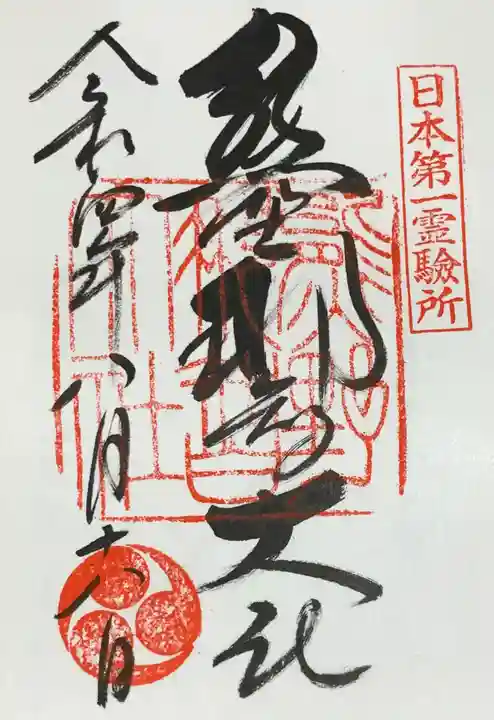 日本第一霊驗所
熊野那智大社
令和四年八月十六日